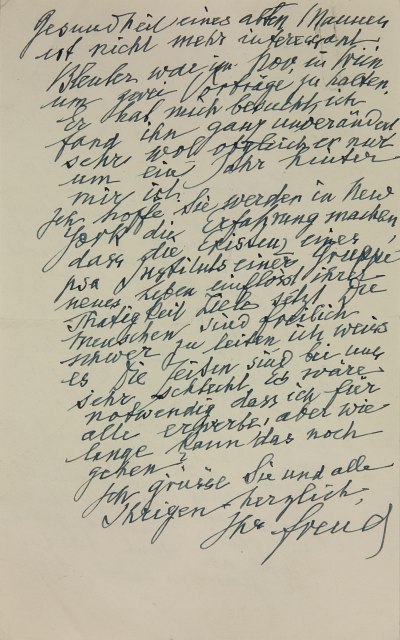 Gesundheit eines alten Mannes
ist nicht mehr interessant.
Bleuler war im Nov in Wien
um zwei Vorträge zu halten,
Er hat mich besucht, ich
fand ihn ganz unverändert
sehr wol obgleich er nur
um ein Jahr hinter
mir ist.
Ich hoffe, Sie werden in New
York die Erfahrung machen,
dass die Existenz eines
psa Instituts einer Gruppe
neues Leben einflösst, ihrer
Thätigkeit Ziele setzt. Die
Menschen sind freilich
schwer zu leiten ich weiss
es. Die Zeiten sind bei uns
sehr schlecht, Es wäre
notwendig dass ich für
alle erwerbe, aber wie
lange kann das noch
gehen?
Ich grüsse Sie und alle
Ihrigen herzlich,
Ihr Freud